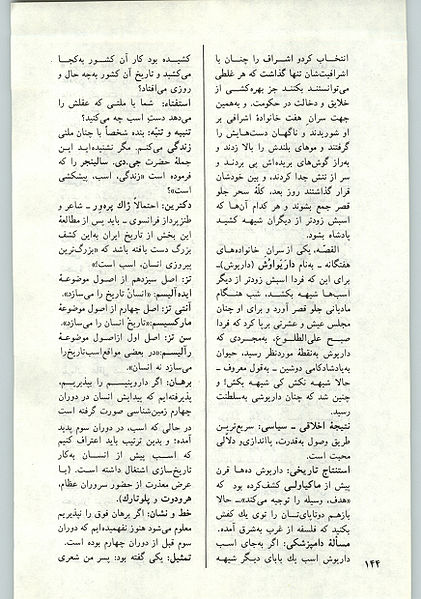 انتخاب کردو اشراف را چنان با
اشرافیت‌شان تنها گذاشت که هر غلطی
می‌توانستند بکنند جز بهره‌کشی از
خلایق و دخالت در حکومت. و به‌همین
جهت سران هفت خانوادۀ اشرافی بر
او شوریدند و ناگهان دست‌هایش را
گرفتند و موهای بلندش را بالا زدند و
به‌راز گوش‌های بریده‌اش پی بردند و
سر از تنش جدا کردند، و بین خودشان
قرار گذاشتند روز بعد، کلّۀ سحر جلو
قصر جمع بشوند و هر کدام آن‌ها که
اسبش زودتر از دیگران شیهه کشید
پادشاه بشود.
القصّه، یکی از سران خانواده‌های
هفتگانه ـ به‌نام داریَواوُش (داریوش)ـ
برای این که فردا اسبش زودتر از دیگر
اسب‌ها شیهه بکشد، شب هنگام
مادیانی جلو قصر آورد و برای او چنان
مجلس عیش و عشرتی برپا کرد که فردا
صبح علی‌الطلوع، به‌مجردی که
داریوش به‌نقطۀ موردنظر رسید، حیوان
به‌یادشادکامی دوشین ـ به‌قول معروف ـ
حالا شیهه نکش کی شیهه بکش! و
چنین شد که چنان داریوشی به‌سلطنت
رسید.
نتیجۀ اخلاقی ـ سیاسی: سریع‌ترین
طریق وصول به‌قدرت، پااندازی و دلّالی
محبت است.
استنتاج تاریخی: داریوش ده‌ها قرن
پیش از ماکیاولی کشف‌کرده بود که
«هدف، وسیله را توجیه می‌کند»ـ حالا
بازهم دوتاپای‌تان را توی یك کفش
بکنید که فلسفه از غرب به‌شرق آمده.
مسألۀ دامپزشکی: اگر به‌جای اسب
داریوش اسب یك بابای دیگر شیهه
کشیده بود کار آن کشور به‌کجا
می‌کشید و تاریخ آن کشور به‌چه حال و
روزی می‌افتاد؟
استفتاء: شما با ملتی که عقلش را
می‌دهد دستِ اسب چه می‌کنید؟
تنبیه و تنبّه: بنده شخصاً با چنان ملتی
زندگی می‌کنم. مگر نشنیده‌اید این
جملۀ حضرت جی.دی. سالینجر را که
فرموده است «زندگی، اسبِ پیشکشی
است»؟
دکترین: احتمالاً ژاك پره‌وِر ـ شاعر و
طنزپرداز فرانسوی ـ باید پس از مطالعۀ
این بخش از تاریخ ایران به‌این کشف
بزرگ دست یافته باشد که «بزرگ‌ترین
پیروزی انسان، اسب است!»
تز: اصل سیزدهم از اصول موضوعۀ
ایده‌آلیسم: «انسان تاریخ را می‌سازد».
آنتی تز: اصل چهارم از اصول موضوعۀ
مارکسیسم:«تاریخ انسان را می‌سازد».
سن تز: اصل اول ازاصول موضوعۀ
رآلیسم:«در بعضی مواقع اسب تاریخ را
می‌سازد نه انسان».
برهان: اگر داروینیسم را بپذیریم،
پذیرفته‌ایم که پیدایش انسان در دوران
چهارم زمین‌شناسی صورت گرفته است
در حالی که اسب، در دوران سوم پدید
آمده؛ و بدین ترتیب باید اعتراف کنیم
که اسب پیش از انسان به‌کار
تاریخ‌سازی اشتغال داشته است. (با
عرض معذرت از حضور سروران عظام،
هرودوت و پلوتارك).
خط و نشان: اگر برهان فوق را نپذیریم
معلوم می‌شود هنوز نفهمیده‌ایم که دوران
سوم قبل از دوران چهارم بوده است.
تمثیل: یکی گفته بود: پسر من شعری
۱۴۴